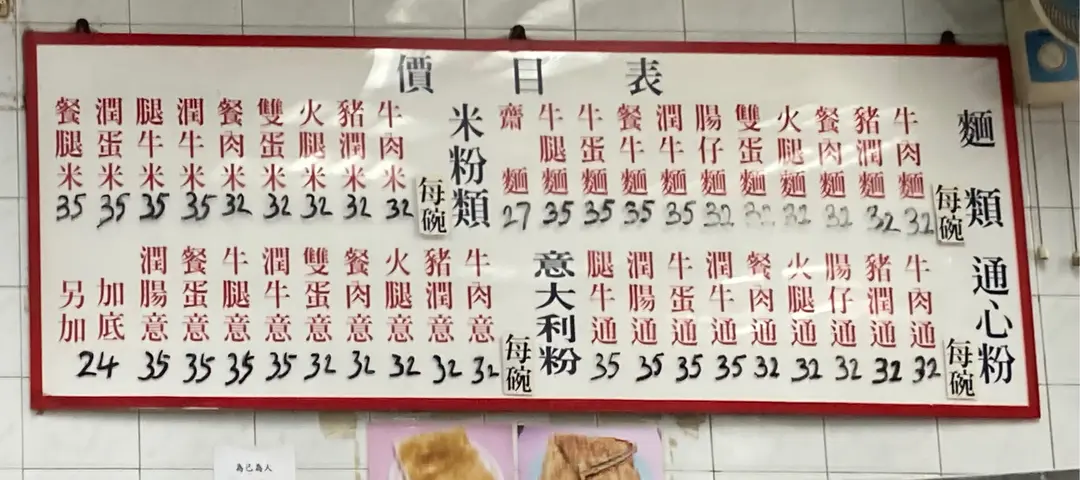 價目表
麵類
每碗
牛肉麵 32
豬潤麵 32
餐肉麵 32
火腿麵 32
雙蛋麵 32
腸仔麵 32
潤牛麵 35
餐牛麵 35
牛蛋麵 35
牛腿麵 35
齋麵 27
米粉類
每碗
牛肉米 32
豬潤米 32
火腿米 32
雙蛋米 32
餐肉米 32
潤牛米 35
腿牛米 35
潤蛋米 35
餐腿米 35
通心粉
每碗
牛肉通 32
豬潤通 32
腸仔通 32
火腿通 32
餐肉通 32
潤牛通 35
牛蛋通 35
潤腸通 35
腿牛通 35
意大利粉
每碗
牛肉意 32
豬潤意 32
火腿意 32
餐肉意 32
雙蛋意 32
潤牛意 35
牛腿意 35
餐蛋意 35
潤腸意 35
加底
另加
24
為己為人